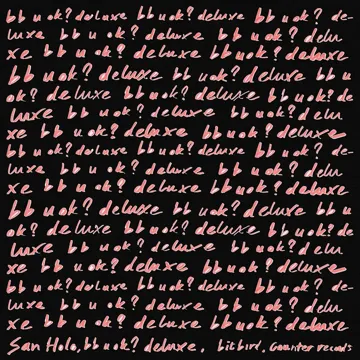 bb u ok? deluxe bb u ok? deluxe bb u ok? de-
luxe bb u ok? deluxe bb u ok? delu
xe bb u ok? deluxe bb u ok? deluxe
bb u ok? deluxe bb u ok? deluxe bb u
ok? deluxe bb u ok? deluxe bb u ok? de
luxe bb u ok? deluxe bb u ok? delu
xe bb u ok? deluxe bb u ok? deluxe
bb u ok? deluxe bb u ok? deluxe bb u ok? de-
luxe bb u ok? deluxe bb u ok? delu
xe bb u ok? deluxe bb u ok? deluxe
bb u ok? deluxe bb u ok? deluxe bb u
ok? deluxe bb u ok? deluxe bb u ok? de
luxe bb u ok? deluxe bb u ok? delu
xe bb u ok? deluxe bb u ok? deluxe
bb u ok? deluxe bb u ok? deluxe bb u ok? de-
luxe bb u ok? deluxe bb u ok? delu
xe bb u ok? deluxe bb u ok? deluxe
San Holo, bb u ok? deluxe, bitbird, Counter records